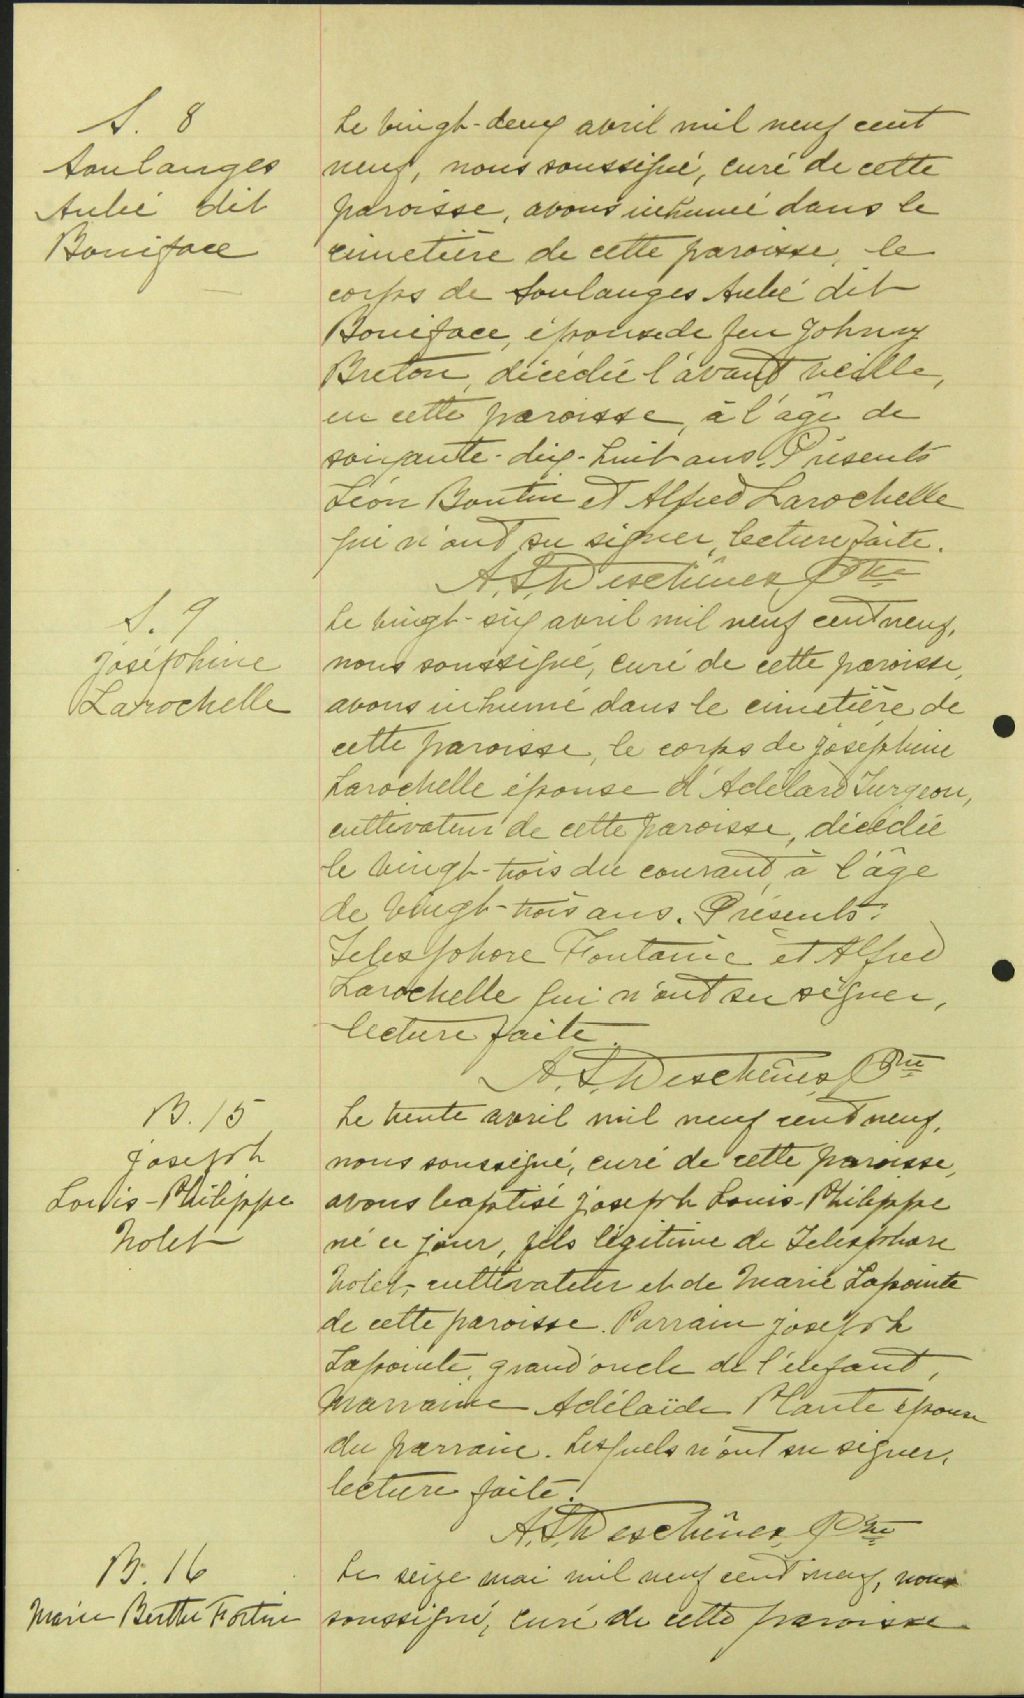 S. 8
Soulanges
Aubé dit
Boniface
Le vingt-deux avril mil neuf cent
neuf, nous soussigné, curé de cette
paroisse, avons inhumé dans le
cimetière de cette paroisse, le
corps de Soulanges Aubé dit
Boniface, épouse de feu Johnny
Breton, décédée l'avant veille,
en cette paroisse, à l'âge de
soixante-dix-huit ans. Présents
Léon Boutin et Alfred Larochelle
qui n'ont su signer, lecture faite.
A. S. Deschênes, Ptre
S. 9
Joséphine
Larochelle
Le vingt-six avril mil neuf cent neuf,
nous soussigné, curé de cette paroisse,
avons inhumé dans le cimetière de
cette paroisse, le corps de Joséphine
Larochelle épouse d'Adélard Turgeon,
cultivateur de cette paroisse, décédée
le vingt-trois du courant, à l'âge
de vingt-trois ans. Présents:
Telesphore Fontaine et Alfred
Larochelle qui n'ont su signer,
lecture faite.
A. S. Deschênes, Ptre
B. 15
Joseph
Louis-Philippe
Nolet
Le trente avril mil neuf cent neuf,
nous soussigné, curé de cette paroisse,
avons baptisé Joseph Louis-Philippe
né ce jour, fils légitime de Telesphore
Nolet, cultivateur et de Marie Lapointe
de cette paroisse. Parrain Joseph
Lapointe, grand'oncle de l'enfant,
Marraine Adélaïde Plante épouse
du parrain. Lesquels n'ont su signer,
lecture faite.
A. S. Deschênes, Ptre
B. 16
Marie Berthe Fortin
Le seize mai mil neuf cent neuf, nous
soussigné, curé de cette paroisse